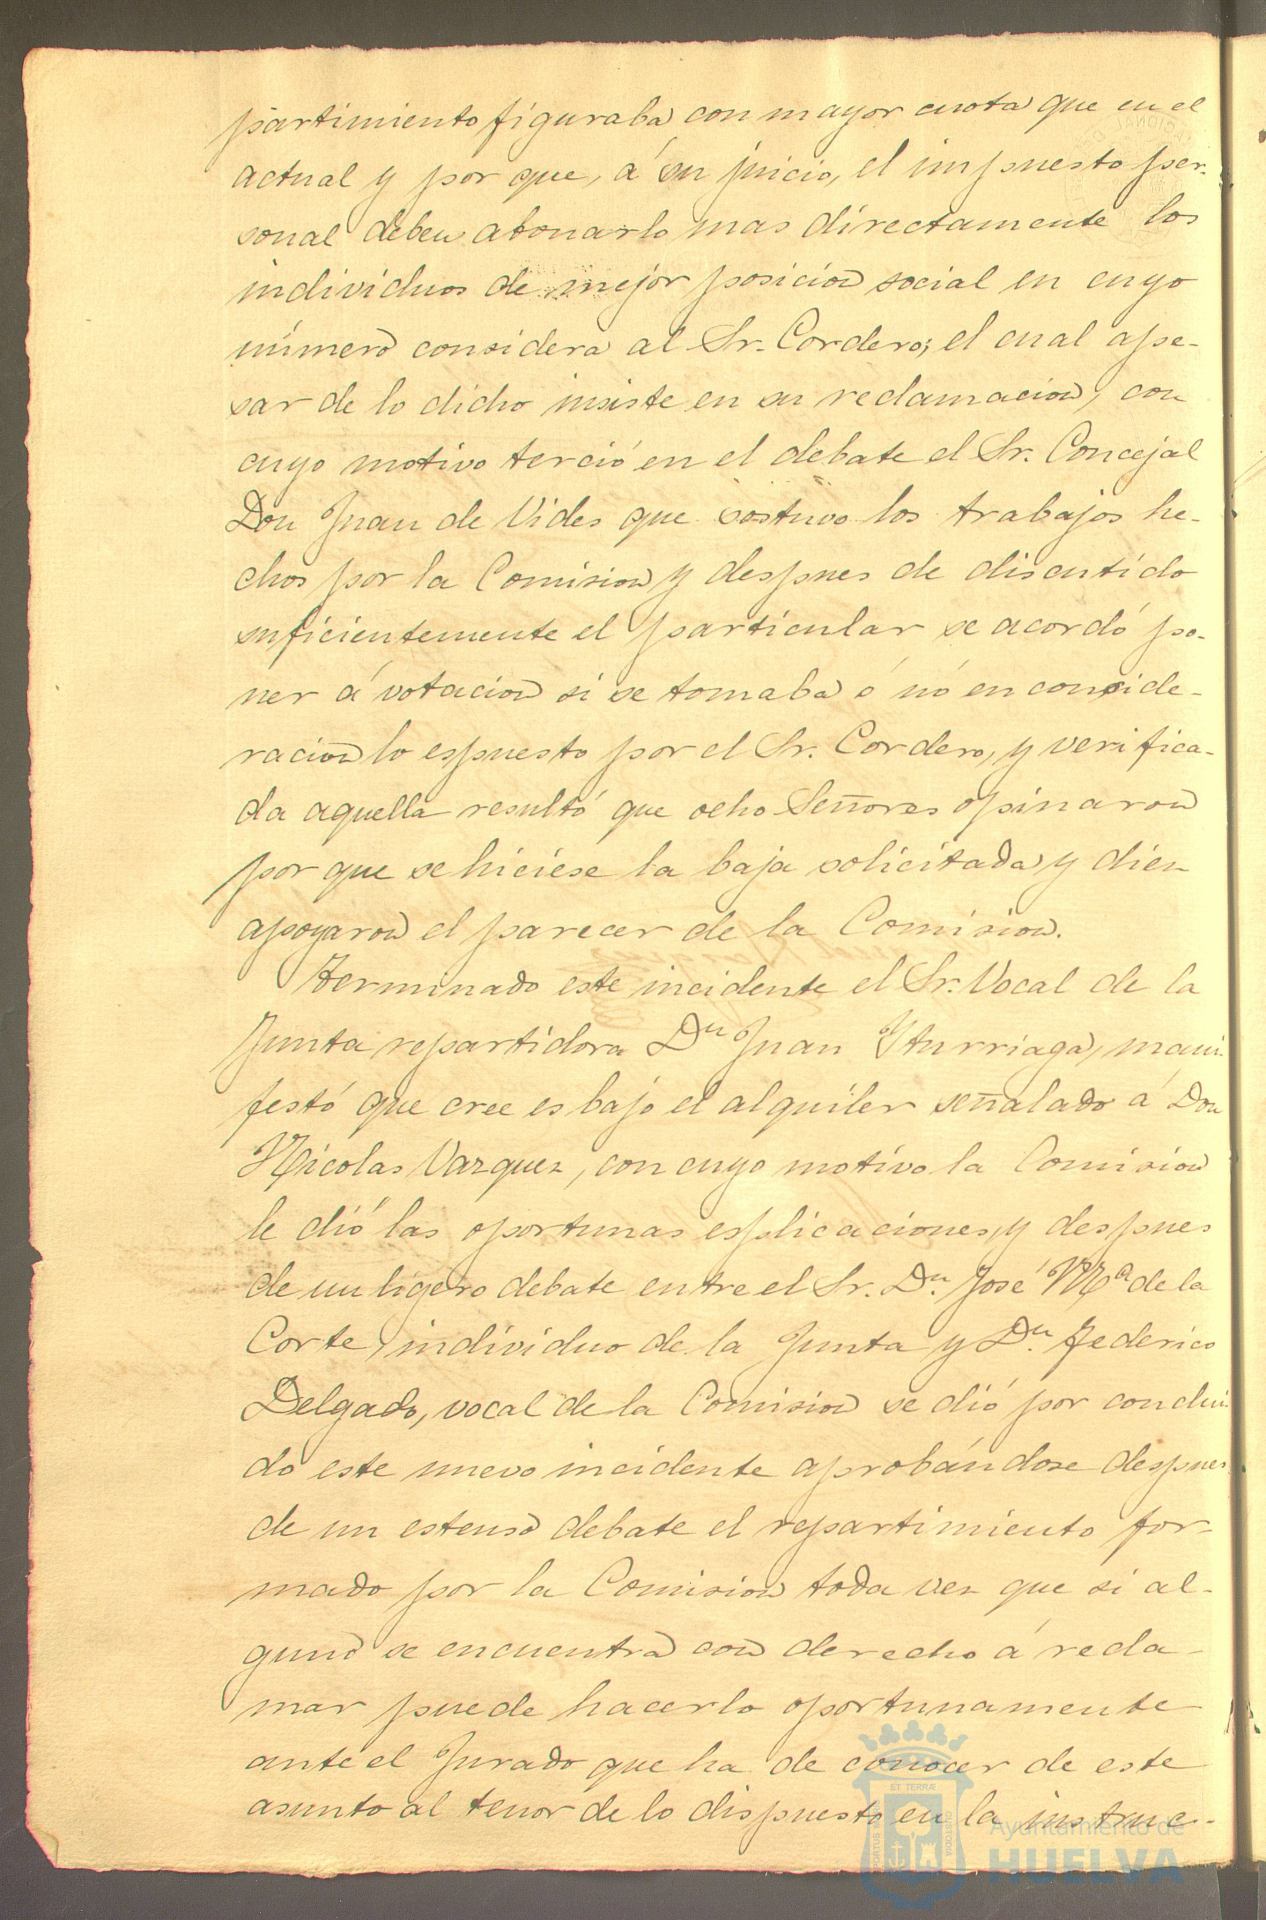 partimiento figuraba con mayor cuota que en el
actual y por que, á su juicio, el impuesto per-
sonal deben abonarlo mas directamente los
individuos de mejor posicion social en cuyo
número considera al Sr. Cordero; el cual ape-
sar de lo dicho insiste en su reclamacion, con
cuyo motivo terció en el debate el Sr. Concejal
Don Juan de Vides que sostuvo los trabajos he-
chos por la Comision y despues de discutido
suficientemente el particular se acordó po-
ner á votacion si se tomaba ó nó en conside-
racion lo espuesto por el Sr. Cordero, y verifica-
da aquella resultó que ocho Señores opinaron
por que se hiciese la baja solicitada y diez
apoyaron el parecer de la Comision.
Terminado este incidente el Sr. Vocal de la
Junta repartidora Dn Juan Yturriaga, mani-
festó que cree es bajo el alquiler señalado á Don
Nicolas Vazquez, con cuyo motivo la Comision
le dió las oportunas esplicaciones, y despues
de un ligero debate entre el Sr. Dn. José Ma de la
Corte, individuo de la Junta y Dn. Federico
Delgado, vocal de la Comision se dió por conclui-
do este nuevo incidente aprobándose despues
de un estenso debate el repartimiento for-
mado por la Comision toda vez que si al-
guno se encuentra con derecho á recla-
mar puede hacerlo oportunamente
ante el Jurado que ha de conocer de este
asunto al tenor de lo dispuesto en la instruc-
ET TERRÆ
Ayuntamiento de
HUELVA